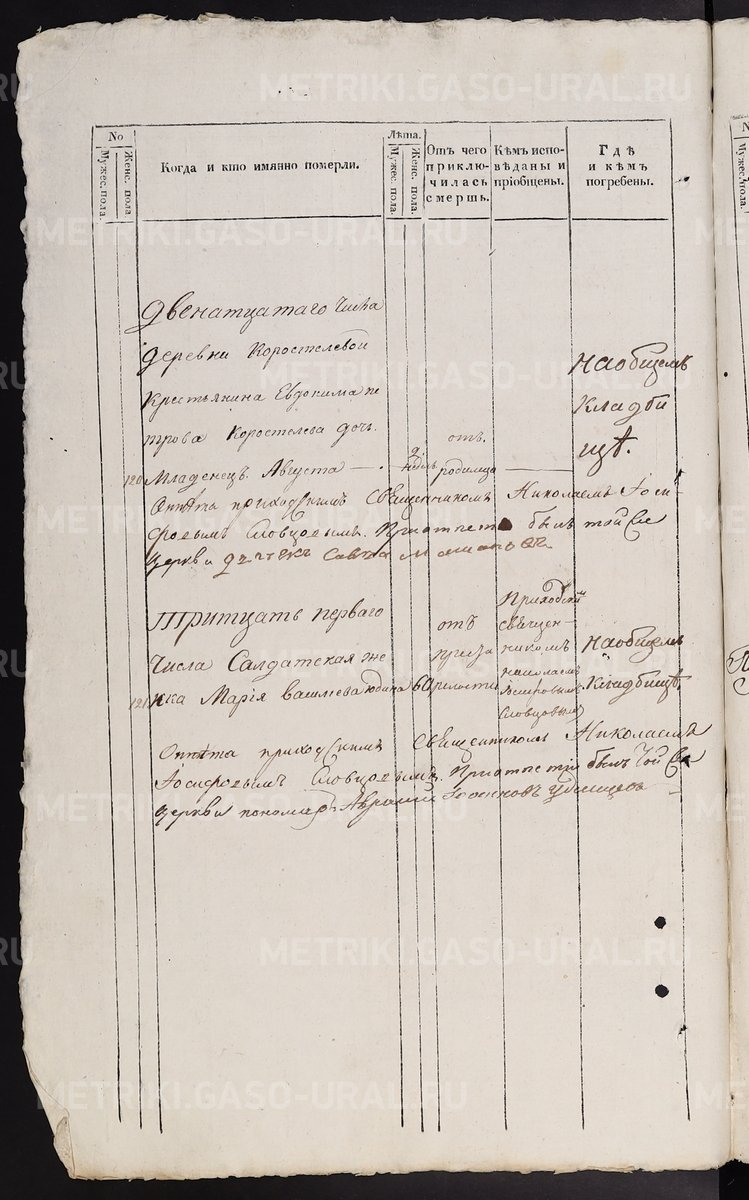 METRIKI.GASO-URAL.RU
No
Мужес. пола.
Женс. пола
Когда и кто имянно померли.
Лѣта.
Мужес. пола
Женс. пола
Отъ чего приключилась смерть.
Кѣмъ исповѣданы и пріобщены.
Гдѣ и кѣмъ погребены.
Двенатцатаго Числа
деревни Коростелевой
Крестьянина Евдокима пе
трова Коростелева дочь
120 Младенецъ Августа
отъ
родимца
наобщемъ
кладби
щѣ.
Опѣта приходскимъ Священникомъ Николаемъ Іоси
фовымъ Словцовымъ. При отпетіи былъ той
церкви дьячекъ Савва
Тритцать перваго
Числа Салдатская же
121 нка Марія
отъ
Приходским
священ
никомъ
николаемъ
Іосифовымъ
Словцовымъ
наобщемъ
кладбищѣ
Опѣта приходскимъ Священникомъ Николаемъ
Іосифовымъ Словцовымъ. При отпетіи былъ той
церкви пономарь Авраамій